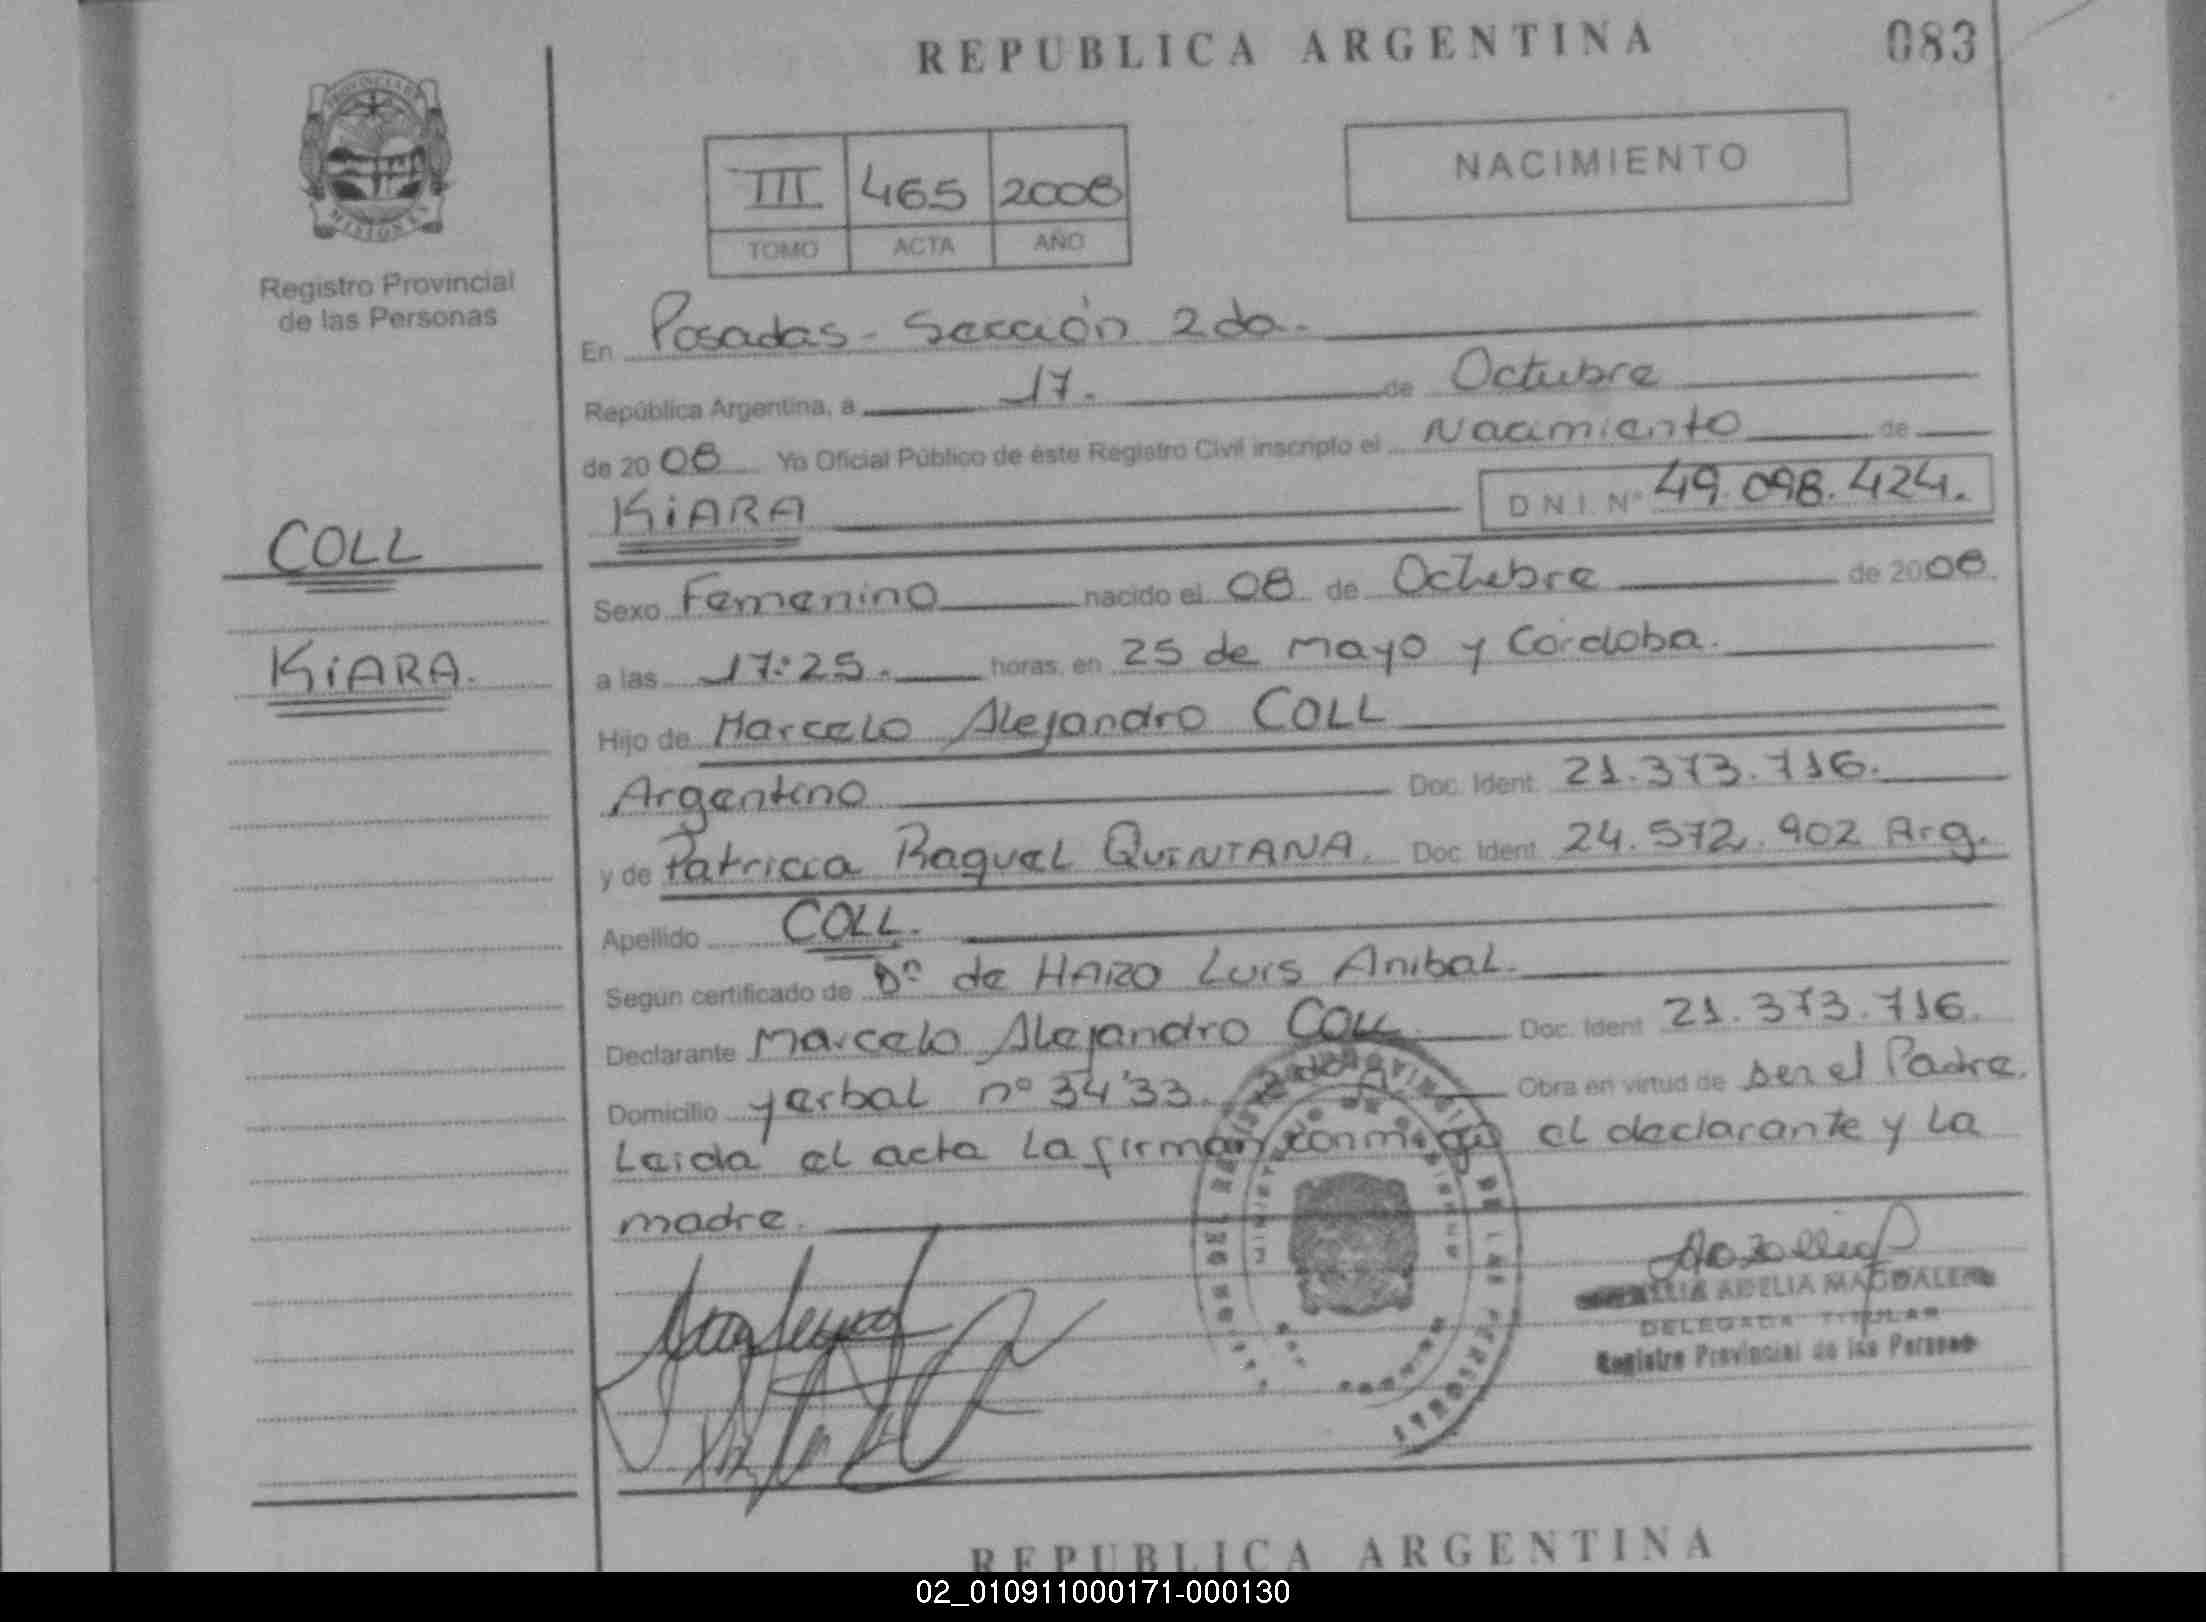 REPUBLICA ARGENTINA
083
PROVINCIA DE
MISIONES
Registro Provincial
de las Personas
III 465 2008
TOMO ACTA AÑO
NACIMIENTO
En Posadas - Sección 2da.
República Argentina, a 17. de Octubre
de 2008 Yo Oficial Público de éste Registro Civil inscripto el Nacimiento de
KiARA D N I. Nº 49.098.424.
COLL
KiARA.
Sexo Femenino nacido el 08 de Octubre de 2008.
a las 17:25. horas, en 25 de mayo y Córdoba.
Hijo de Marcelo Alejandro COLL
Argentino Doc. Ident. 21.373.716.
y de Patricia Raquel QUINTANA. Doc. Ident. 24.572.902 Arg.
Apellido COLL.
Según certificado de de HARO Luis Anibal.
Declarante Marcelo Alejandro COLL Doc. Ident 21.373.716.
Domicilio yerbal nº 3433. Obra en virtud de ser el Padre.
Leida el acta la firman conmigo el declarante y la
madre.
ADELIA MAGDALENA
DELEGADA TITULAR
Registro Provincial de las Personas
REPUBLICA ARGENTINA
02_010911000171-000130